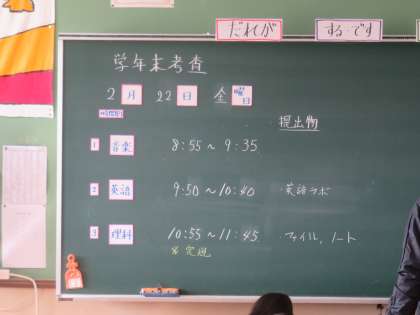 だれが
する です
学年末考査
2月 22日 金曜日
時間割
提出物
1 音楽 8:55～9:35
2 英語 9:50～10:40 英語ラボ
3 理科 10:55～11:45 ファイル、ノート